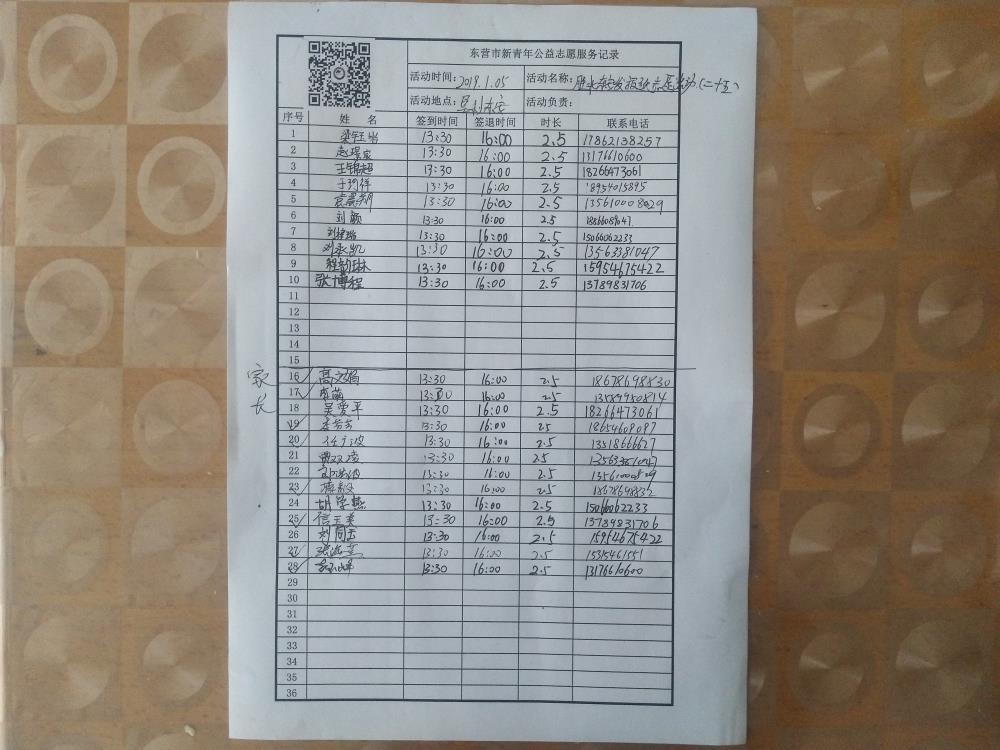 东营市新青年公益志愿服务记录
活动时间:2019.1.05 活动名称: (二十五)
活动地点: 活动负责:
序号 姓 名 签到时间 签退时间 时长 联系电话
1 13:30 16:00 2.5 17862138257
2 13:30 16:00 2.5 13176610600
3 王锦超 13:30 16:00 2.5 18266473061
4 13:30 16:00 2.5 18954015895
5 13:30 16:00 2.5 135610008029
6 刘颖 13:30 16:00 2.5
7 13:30 16:00 2.5 15066062233
8 刘承凯 13:30 16:00 2.5 13563381047
9 程韵琳 13:30 16:00 2.5 15954675422
10 张博程 13:30 16:00 2.5 13789831706
11
12
13
14
15
家长
16 高文娟 13:30 16:00 2.5 18678698830
17 李萌 13:30 16:00 2.5
18 吴爱平 13:30 16:00 2.5 18266473061
19 13:30 16:00 2.5 18654609097
20 任广波 13:30 16:00 2.5
21 13:30 16:00 2.5
22 13:30 16:00 2.5
23 13:30 16:00 2.5
24 胡学燕 13:30 16:00 2.5 15066062233
25 信玉美 13:30 16:00 2.5 13789831706
26 刘同玉 13:30 16:00 2.5 15954675422
27 13:30 16:00 2.5 15315461551
28 13:30 16:00 2.5 13176610600
29
30
31
32
33
34
35
36